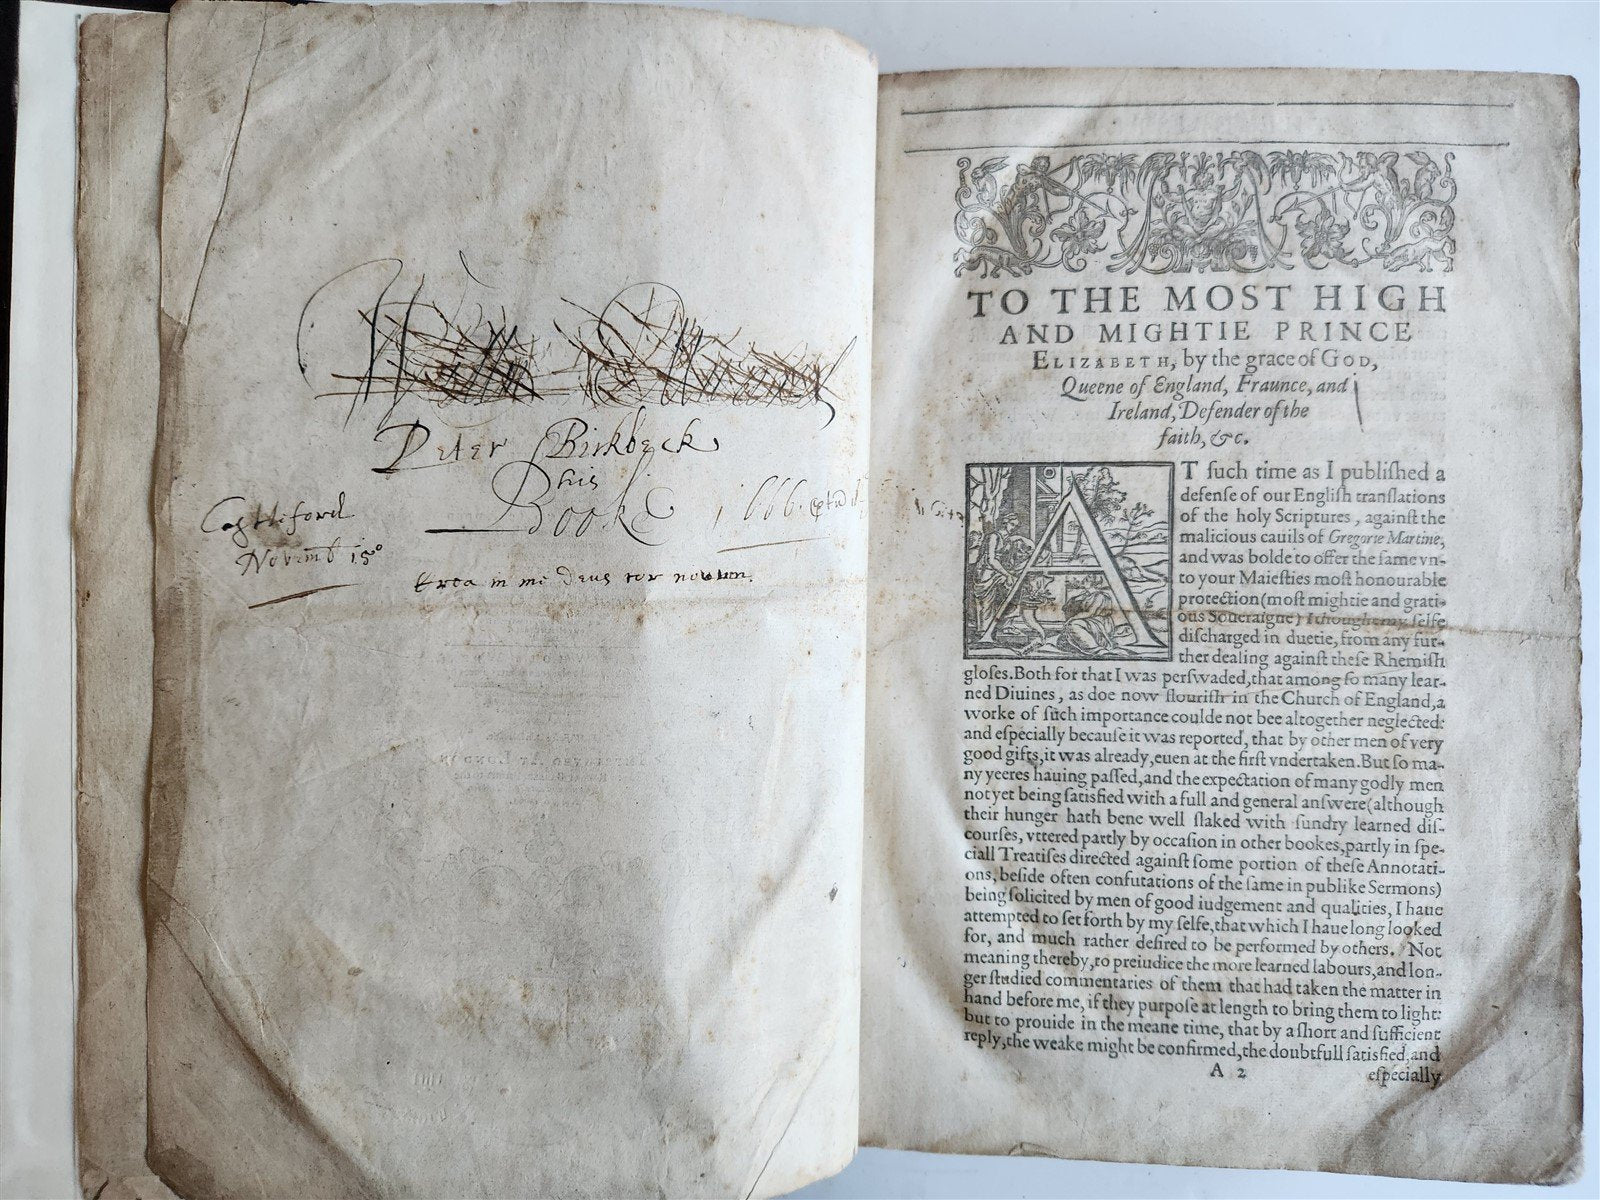 Peter Birkbeck
his
Booke 1666
Castleford
Novemb 15°
Crea in me Deus cor novum.
TO THE MOST HIGH
AND MIGHTIE PRINCE
ELIZABETH, by the grace of GOD,
Queene of England, Fraunce, and
Ireland, Defender of the
faith, &c.
AT ſuch time as I publiſhed a
defenſe of our Engliſh tranſlations
of the holy Scriptures, againſt the
malicious cauils of Gregorie Martine,
and was bolde to offer the ſame vn-
to your Maieſties moſt honourable
protection (moſt mightie and grati-
ous Soueraigne) I thought my ſelfe
diſcharged in duetie, from any fur-
ther dealing againſt theſe Rhemiſh
gloſes. Both for that I was perſwaded, that among ſo many lear-
ned Diuines, as doe now flouriſh in the Church of England, a
worke of ſuch importance coulde not bee altogether neglected:
and eſpecially becauſe it was reported, that by other men of very
good gifts, it was already, euen at the firſt vndertaken. But ſo ma-
ny yeeres hauing paſſed, and the expectation of many godly men
not yet being ſatisfied with a full and general anſwere (although
their hunger hath bene well ſlaked with ſundry learned diſ-
courſes, vttered partly by occaſion in other bookes, partly in ſpe-
ciall Treatiſes directed againſt ſome portion of theſe Annotati-
ons, beſide often confutations of the ſame in publike Sermons)
being ſolicited by men of good iudgement and qualities, I haue
attempted to ſet forth by my ſelfe, that which I haue long looked
for, and much rather deſired to be performed by others. Not
meaning thereby, to preiudice the more learned labours, and lon-
ger ſtudied commentaries of them that had taken the matter in
hand before me, if they purpoſe at length to bring them to light:
but to prouide in the meane time, that by a ſhort and ſufficient
reply, the weake might be confirmed, the doubtfull ſatisfied, and
A 2 eſpecially